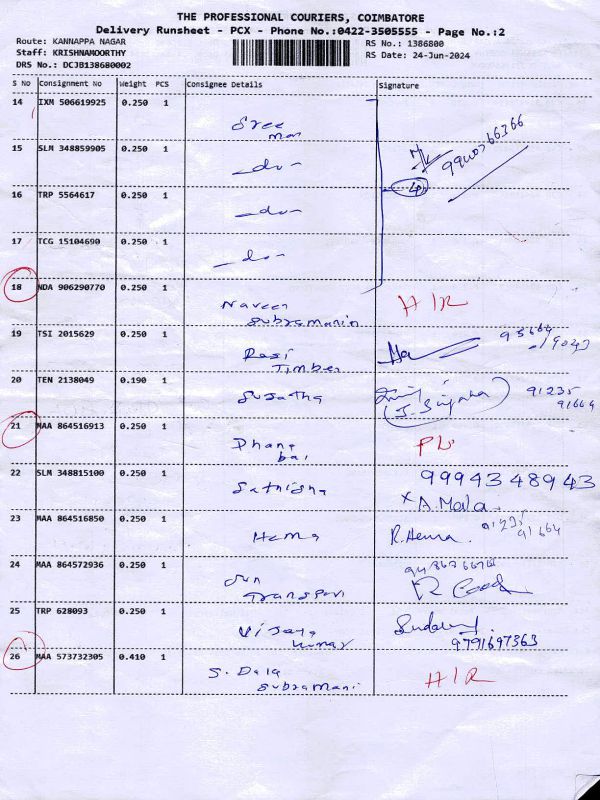 THE PROFESSIONAL COURIERS, COIMBATORE
Delivery Runsheet - PCX - Phone No.:0422-3505555 - Page No.:2
Route: KANNAPPA NAGAR
RS No.: 1386800
Staff: KRISHNAMOORTHY
RS Date: 24-Jun-2024
DRS No.: DCJB138680002
S No Consignment No Weight PCS Consignee Details Signature
14 IXM 506619925 0.250 1
Sree
man
15 SLM 348859905 0.250 1
-do-
16 TRP 5564617 0.250 1
-do-
17 TCG 15104690 0.250 1
-do-
18 NDA 906290770 0.250 1
Naveen
Subramanin H/R
19 TSI 2015629 0.250 1
Rasi
Timber
20 TEN 2138049 0.190 1
Sujatha
91235
91664
21 MAA 864516913 0.250 1
Dhana
bai
22 SLM 348815100 0.250 1
9994348943
Sathisha
A. Mala
23 MAA 864516850 0.250 1
Hema R. Hema 91235
91664
24 MAA 864572936 0.250 1
Sun
Transport
25 TRP 628093 0.250 1
Vijaya
Kumar
9791697363
26 MAA 573732305 0.410 1
S. Bala
Subramani H/R